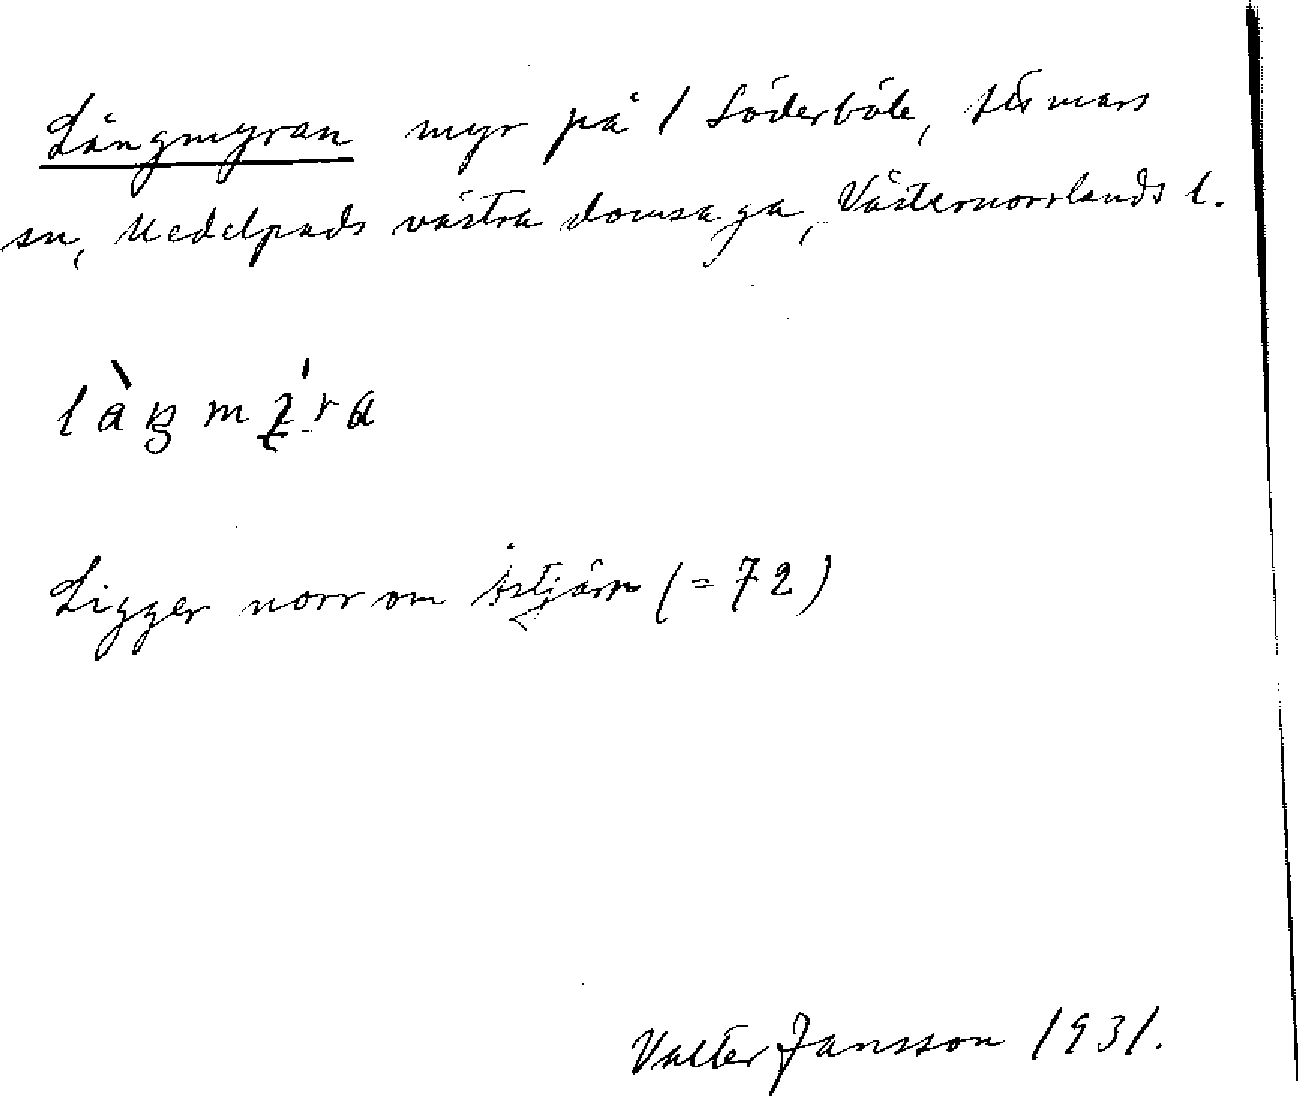 Långmyran myr på 1 Söderböle, Tuns
sn, Medelpads västra domsaga, Västernorrlands l.
Ligger norr om Istjärn (= 72)
Valter Jansson 1931.